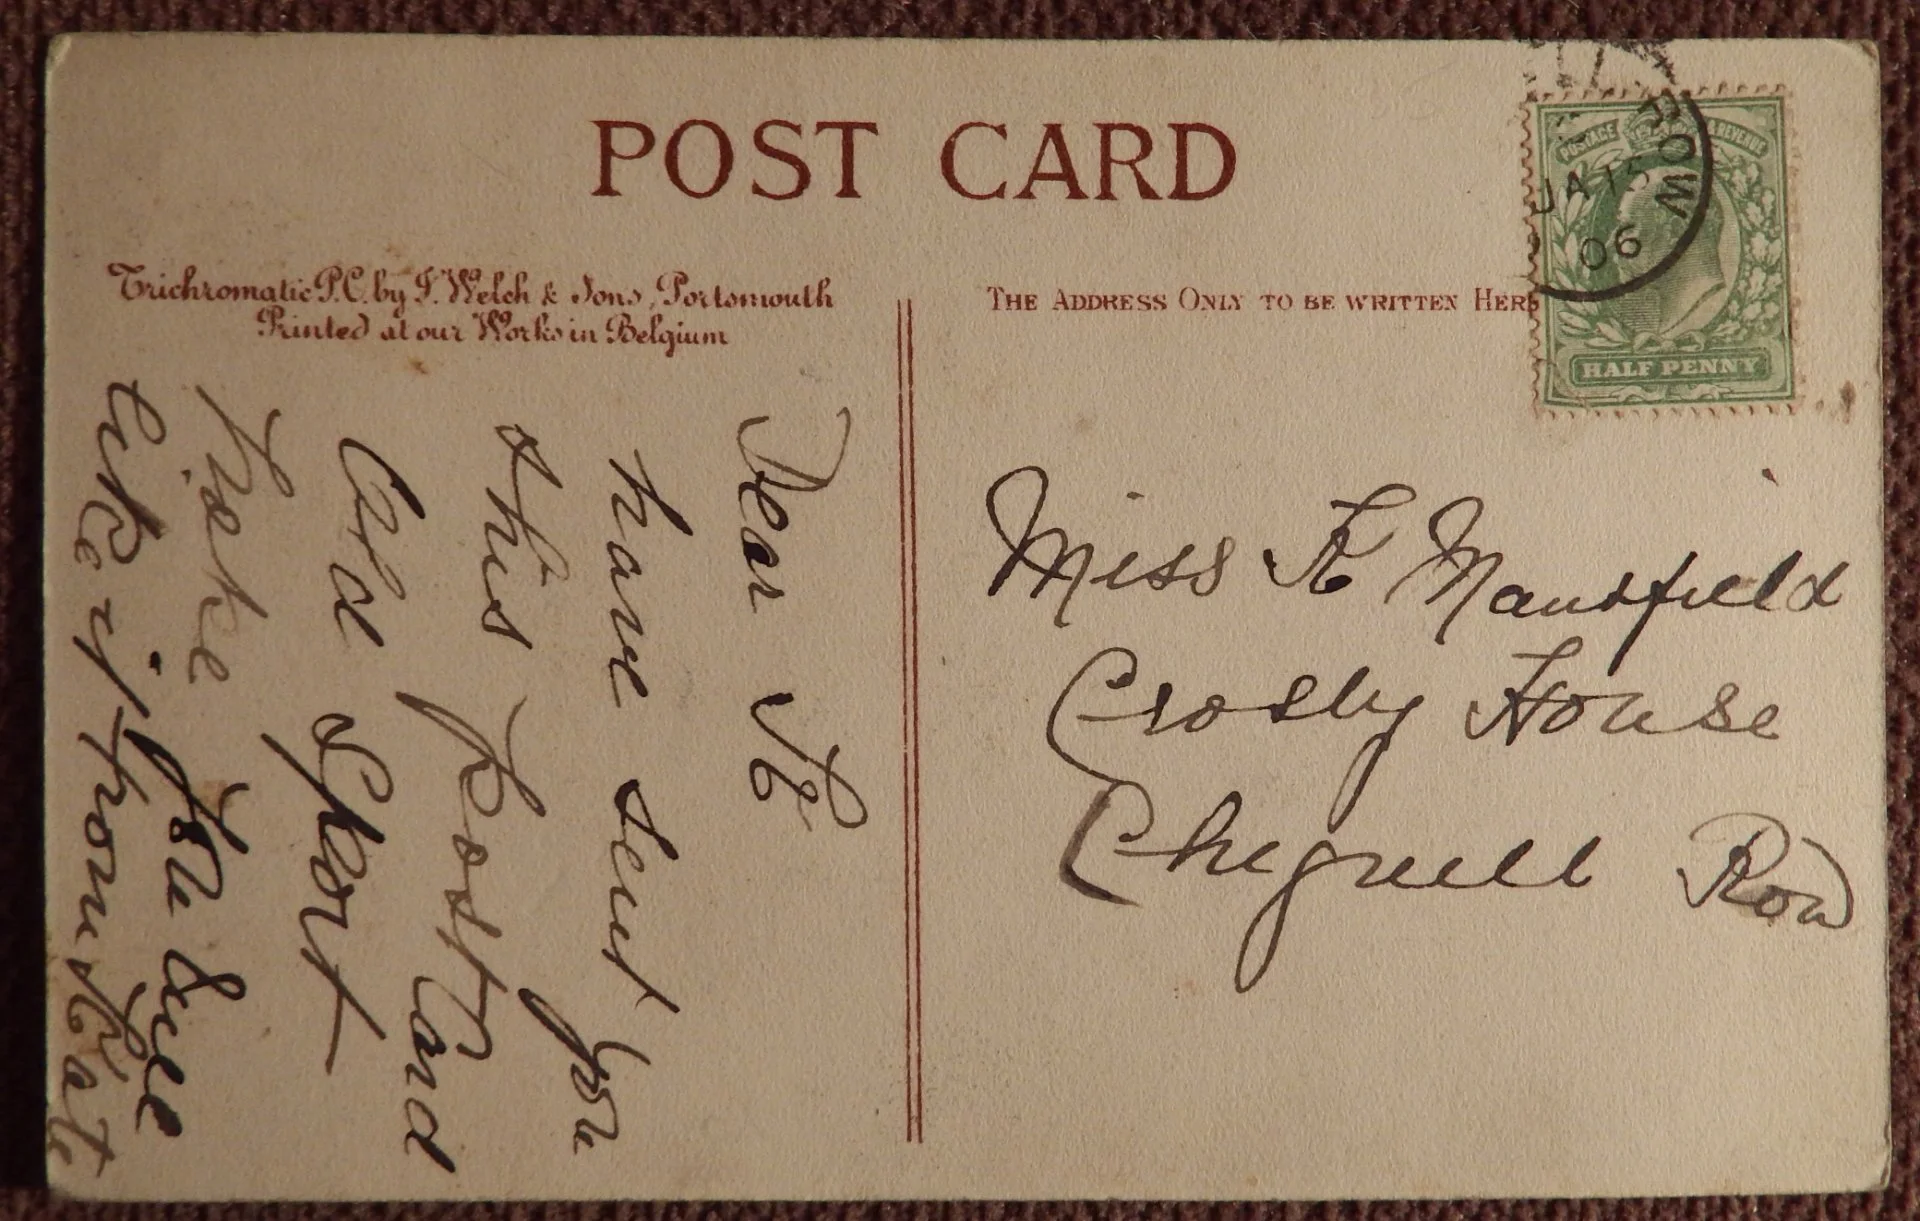 POST CARD
Trichromatic P.C. by F. Welch & Sons, Portsmouth
Printed at our Works in Belgium
THE ADDRESS ONLY TO BE WRITTEN HERE
POSTAGE & REVENUE
JA 15
06
HALF PENNY
Dear K
have sent you
this Post Card
Old Sport
hope you will
like it from Kate
Miss K Mansfield
Crosby House
Chegnell Row